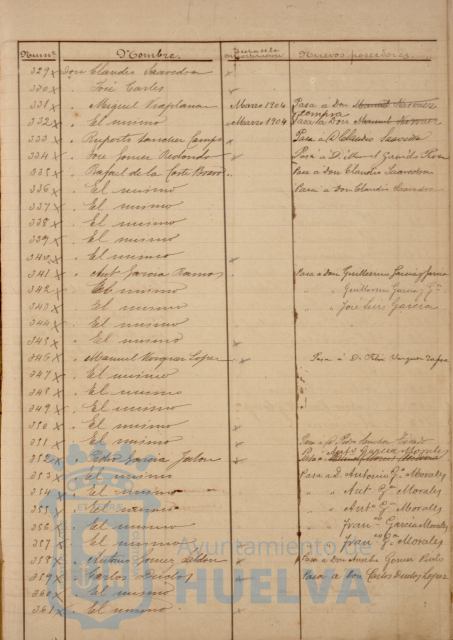 Num.º Nombre. Nuevos poseedores.
329 Don Claudio Saavedra
330 " José Cartes
331 " Miguel Vizplana Marzo 1904 Pasa a Don
compra
332 " El mismo Marzo 1904 Pasa a Don
333 " Ruperto Sanchez Campo Pasa a D. Claudio Saavedra
334 " José Gomez Redondo Pasa á D. Manuel Garrido
335 " Rafael de la Corte Bravo Pasa a Don Claudio Saavedra
336 " El mismo Pasa a Don Claudio Saavedra
337 " El mismo
338 " El mismo
339 " El mismo
340 " El mismo
341 " Ant. Garcia Ramos Pasa a Don Guillermo Garcia y Garcia
342 " El mismo " " Guillermo Garcia y G.ª
343 " El mismo " " José Luis Garcia
344 " El mismo
345 " El mismo
346 " Manuel Vazquez Lopez Pasa á D. Felix Vazquez Zafra
347 " El mismo
348 " El mismo
349 " El mismo
350 " El mismo
351 " El mismo Pasa a D. Pedro
Ant.º Garcia Morales
352 " Pedro Garcia Jalon Pasa a
353 " El mismo Pasa a D. Antonio G.ª Morales
354 " El mismo " " Ant.º G.ª Morales
355 " El mismo " " Ant.º G.ª Morales
356 " El mismo " " Fran.co Garcia Morales
357 " El mismo " " Fran.co G.ª Morales
358 " Antonio Gomez Pasa a Don Amelio Gomez
359 " Carlos Ducloz Pasa a Don Carlos Ducloz Lopez
360 " El mismo
361 " El mismo
Ayuntamiento de
HUELVA